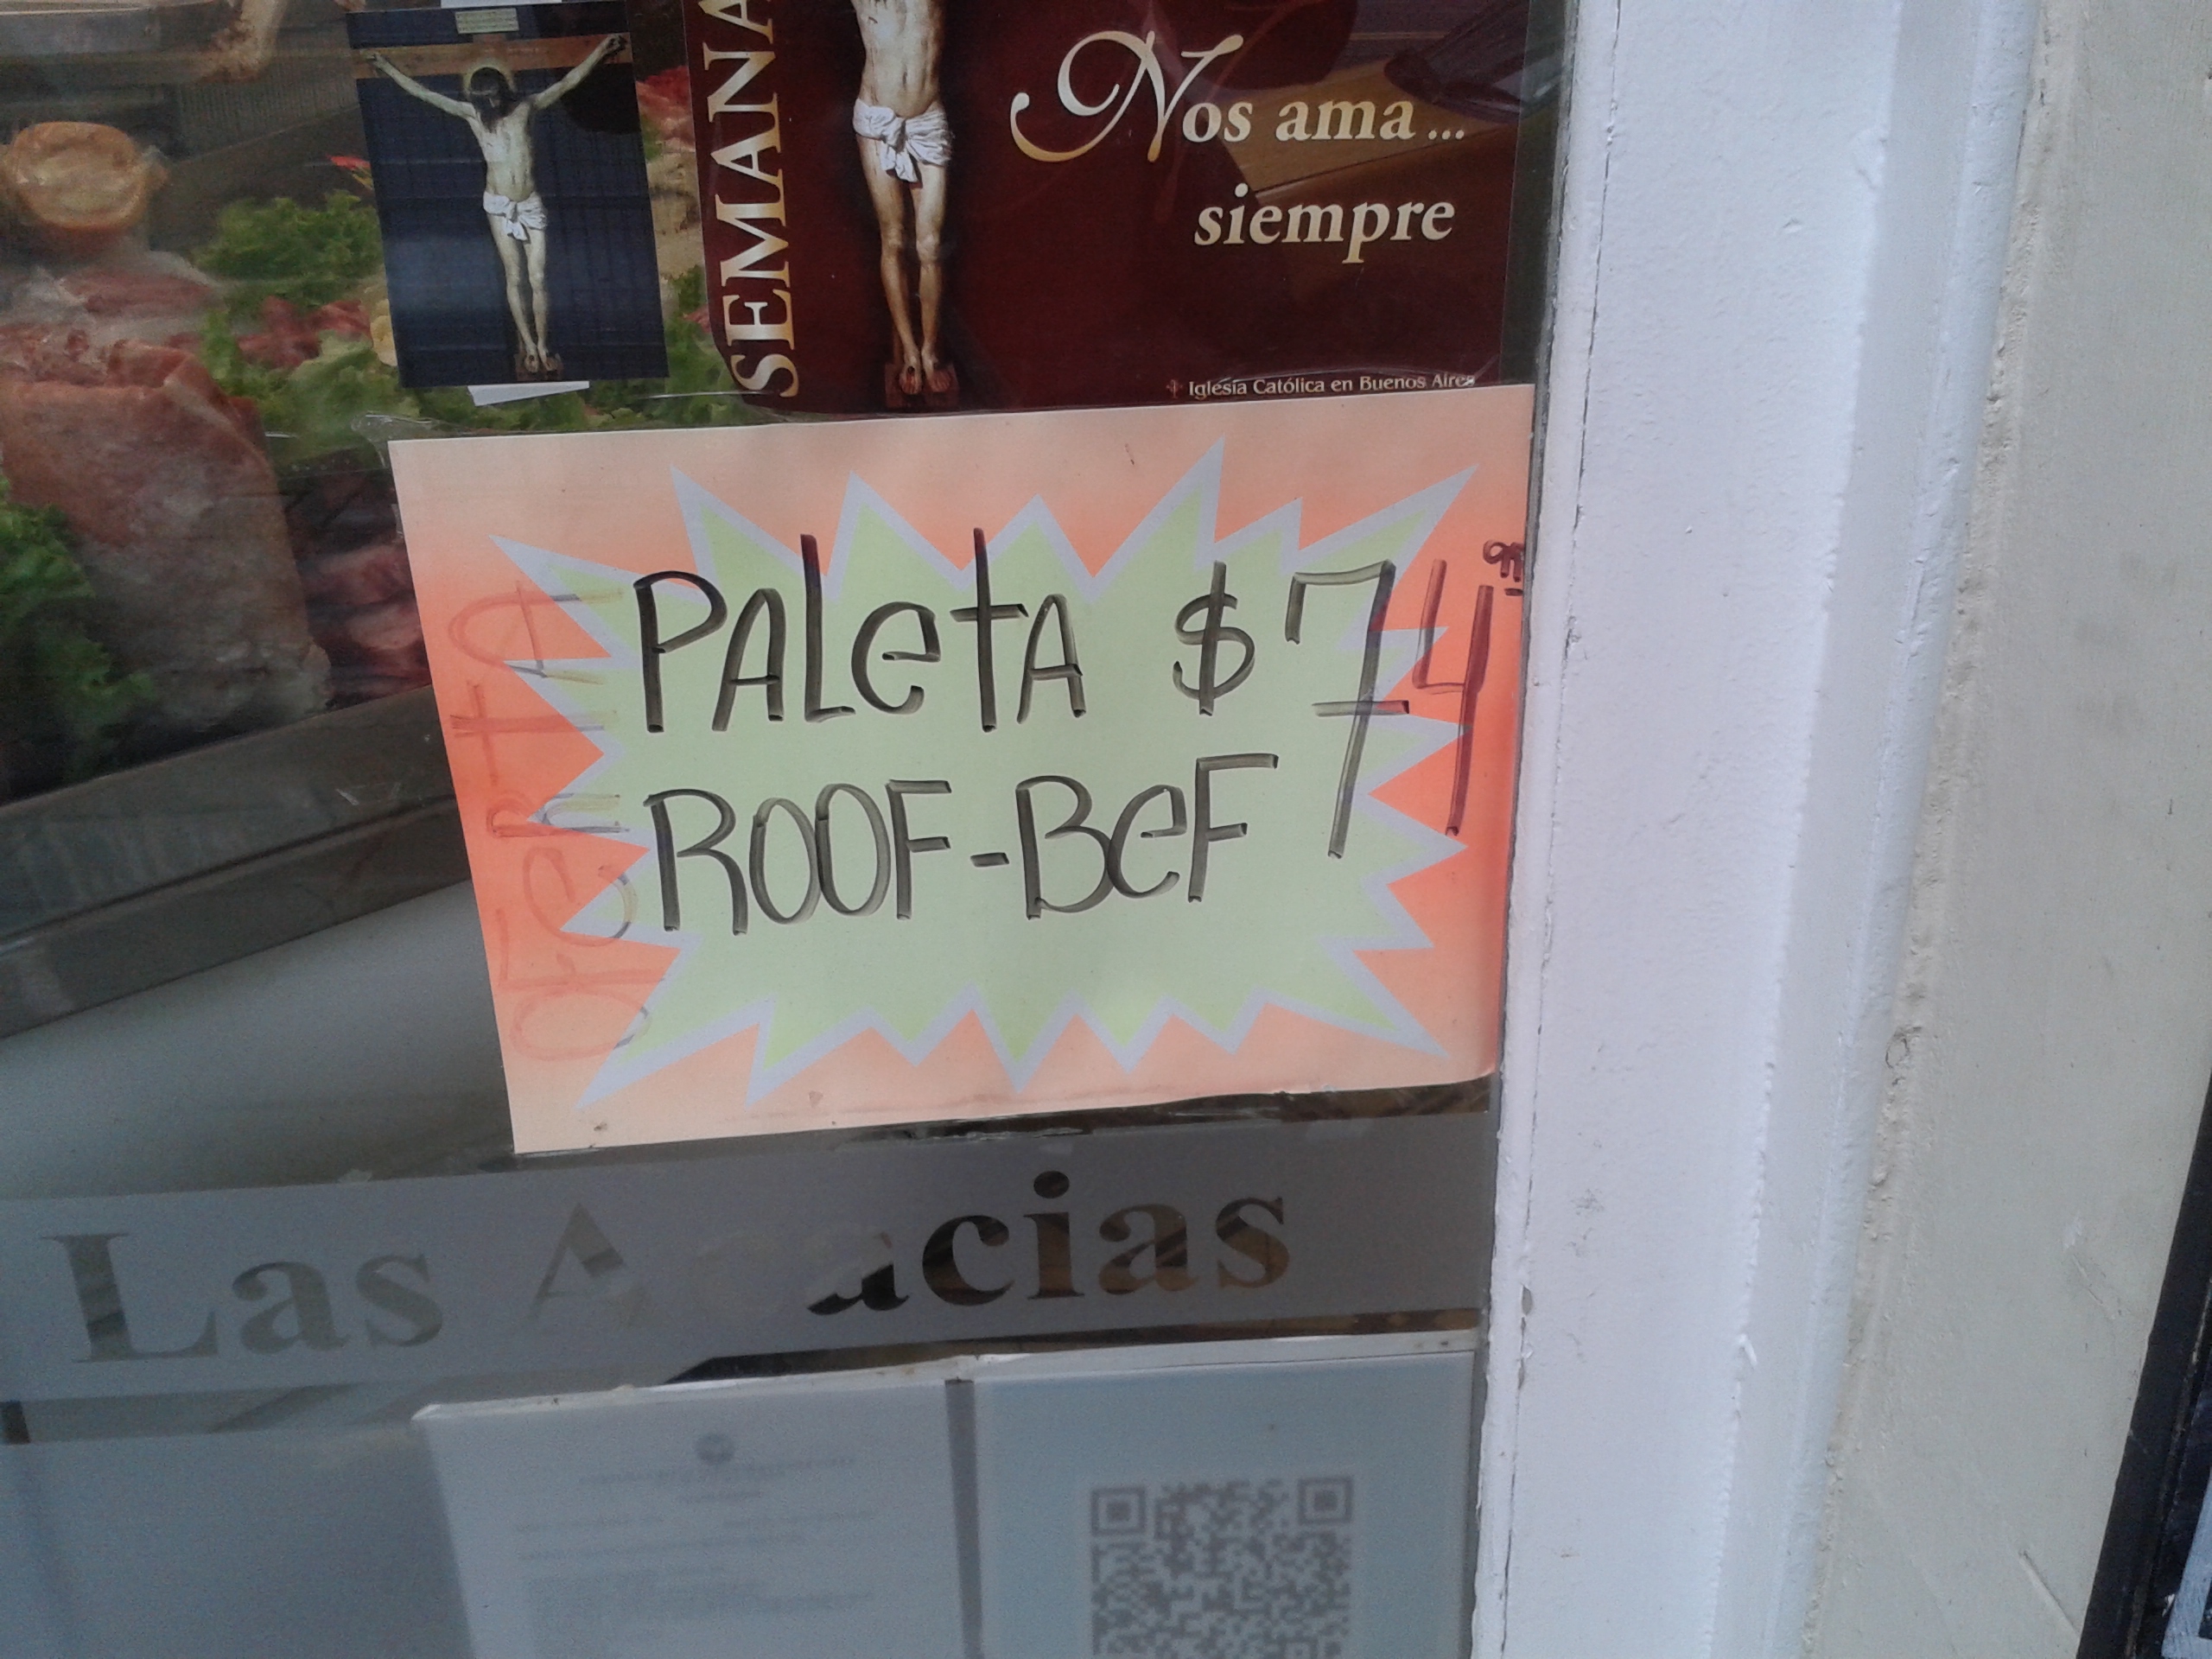 SEMANA
Nos ama...
siempre
Iglesia Católica en Buenos Aires
oferta
PALetA $74
ROOF-BeF
Las A acias